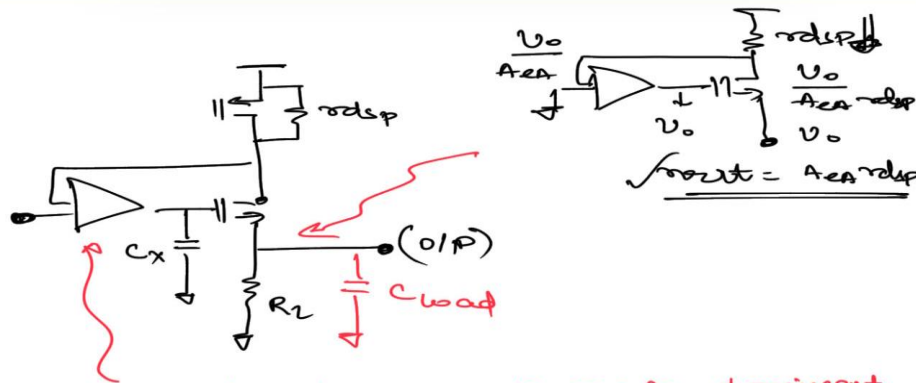 rdsp
Cx
R2
(O/P)
Cload
vo
AEA
rdsp
vo
vo
AEA rdsp
vo
rout = AEA rdsp